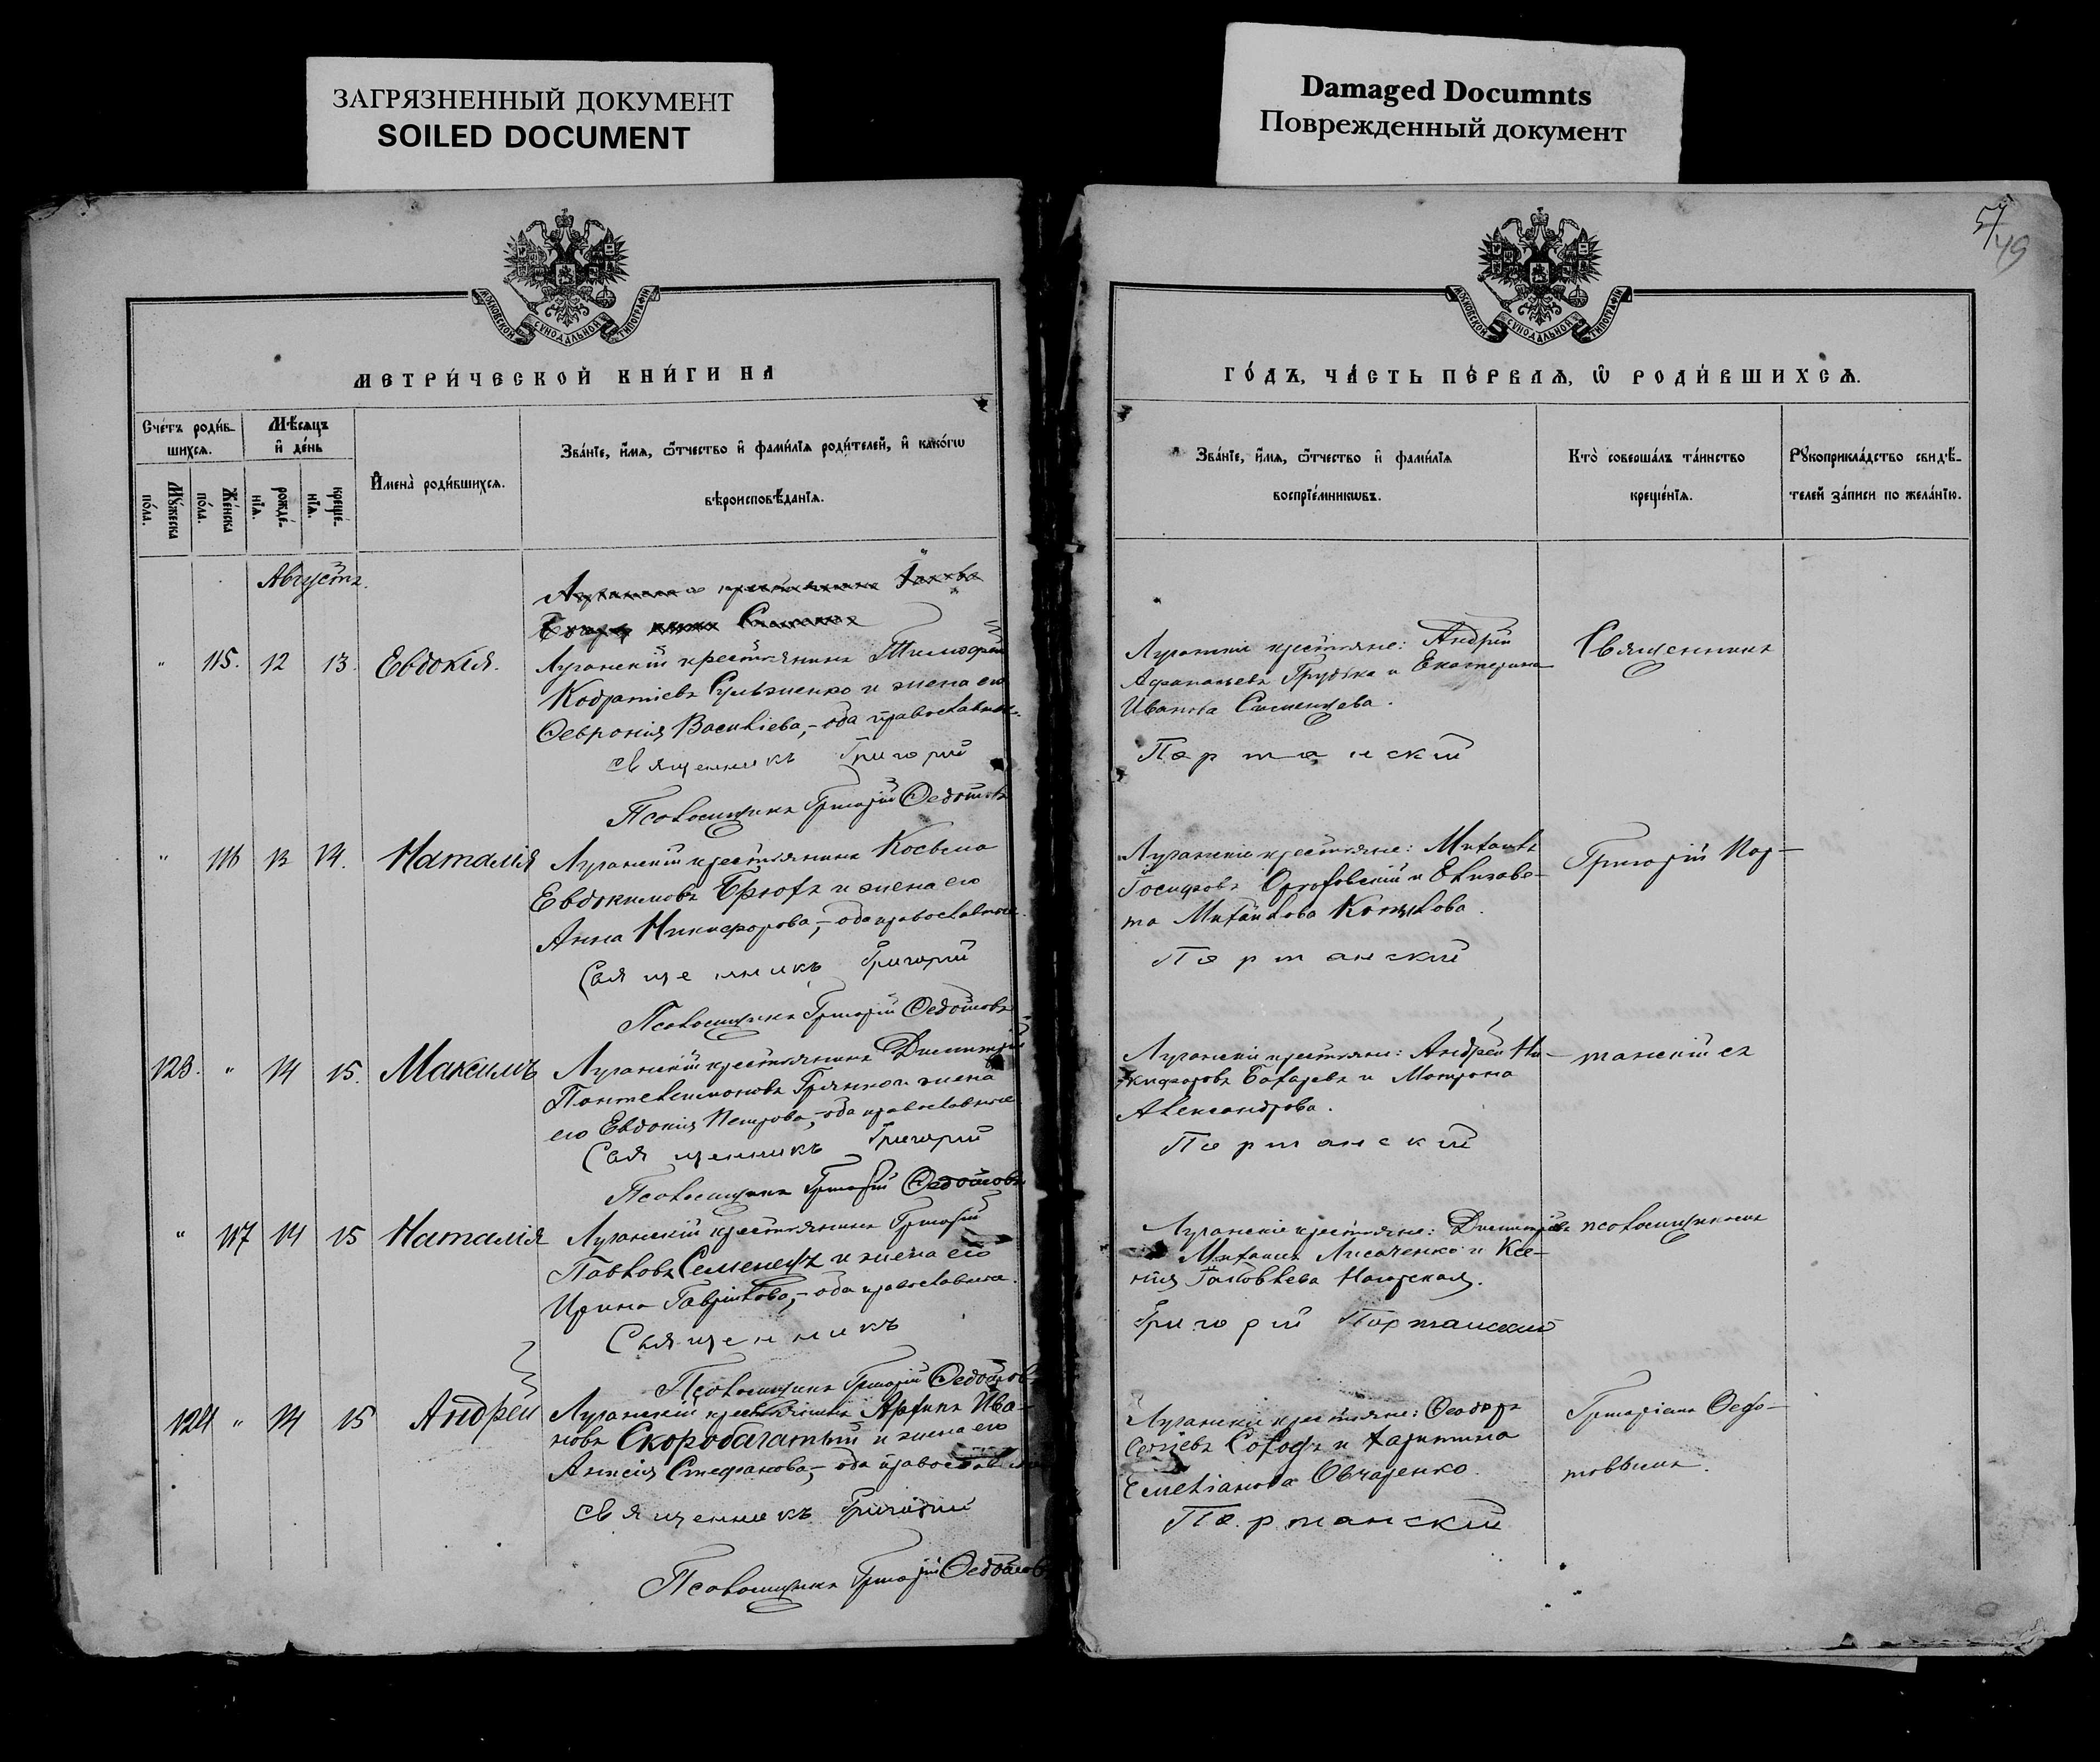 ЗАГРЯЗНЕННЫЙ ДОКУМЕНТ
SOILED DOCUMENT
Damaged Documnts
Поврежденный документ
57
49
МОСКОВСКОЙ СУНОДАЛЬНОЙ ТИПОГРАФІИ
МОСКОВСКОЙ СУНОДАЛЬНОЙ ТИПОГРАФІИ
МЕТРИ́ЧЕСКОЙ КНИ́ГИ НА
ГО́ДЪ, ЧА́СТЬ ПЕ́РВАѦ, Ѽ РОДИ́ВШИХСѦ.
Сче́тъ роди́в-
шихсѧ.
Мѣ́сѧцъ
и҆ де́нь
И҆мена̀ роди́вшихсѧ.
Зва́нїе, и҆́мѧ, ѻ҆́тчество и҆ фами́лїѧ роди́телей, и҆ како́гѡ
вѣроисповѣ́данїѧ.
Мꙋ́жеска по́ла.
Же́нска по́ла.
рожде́-нїѧ.
креще́-нїѧ.
Зва́нїе, и҆́мѧ, ѻ҆́тчество и҆ фами́лїѧ
воспрїе́мникѡвъ.
Кто̀ соверша́лъ та́инство
креще́нїѧ.
Рꙋкоприкла́дство свидѣ́-
телей за́писи по жела́нїю.
Августъ.
" 115. 12 13. Евдокія. Луганскій крестьянинъ Тимофей
Кодратіевъ и жена его
Ѳевронія Василіева,- оба православные.
Священникъ Григорій
Псаломщикъ Григорій Ѳедотовъ
Луганскіе крестьяне: Андрей
Афанасьевъ Грудка и Екатерина
Иванова
Портанскій
Священникъ
" 116 13 14. Наталія Луганскій крестьянинъ Косьма
Евдокимовъ и жена его
Анна Никифорова,- оба православные.
Священникъ Григорій
Псаломщикъ Григорій Ѳедотовъ
Луганскіе крестьяне: Михаилъ
Іосифовъ и Елизаве-
та Михайлова
Портанскій
Григорій Пор-
123. " 14 15. Максимъ Луганскій крестьянинъ Димитрій
Пантелеимоновъ и жена
его Евдокія Петрова,- оба православные
Священникъ Григорій
Псаломщикъ Григорій Ѳедотовъ
Луганскіе крестьяне: Андрей Ни-
кифоровъ и Матрона
Александрова.
Портанскій
танскій съ
" 117 14 15 Наталія Луганскій крестьянинъ Григорій
Павловъ Семенецъ и жена его
Ирина Гавриилова,- оба православные.
Священникъ
Псаломщикъ Григорій Ѳедотовъ
Луганскіе крестьяне: Димитрій
Лисаченко и Ксе-
нія Іаковлева Нагорская.
Григорій Портанскій
псаломщикомъ
124 " 14 15 Андрей Луганскій крестьянинъ Ива-
новъ Скоробагатый и жена его
Анисія Стефанова,- оба православные
Священникъ Григорій
Псаломщикъ Григорій Ѳедотовъ
Луганскіе крестьяне: Ѳеодоръ
Сергіевъ и Харитина
Емеліанова Овчаренко.
Портанскій
Григоріемъ Ѳедо-
товымъ.